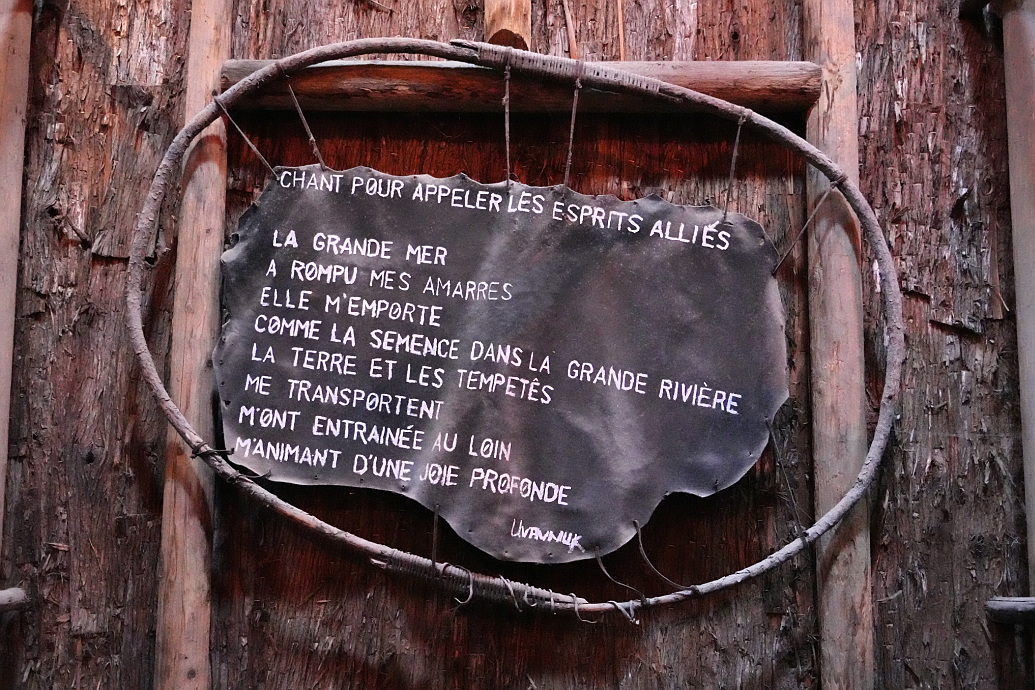 CHANT POUR APPELER LES ESPRITS ALLIÉS
LA GRANDE MER
A ROMPU MES AMARRES
ELLE M'EMPORTE
COMME LA SEMENCE DANS LA GRANDE RIVIÈRE
LA TERRE ET LES TEMPETÊS
ME TRANSPORTENT
M'ONT ENTRAINÉE AU LOIN
M'ANIMANT D'UNE JOIE PROFONDE
UVAVNUK